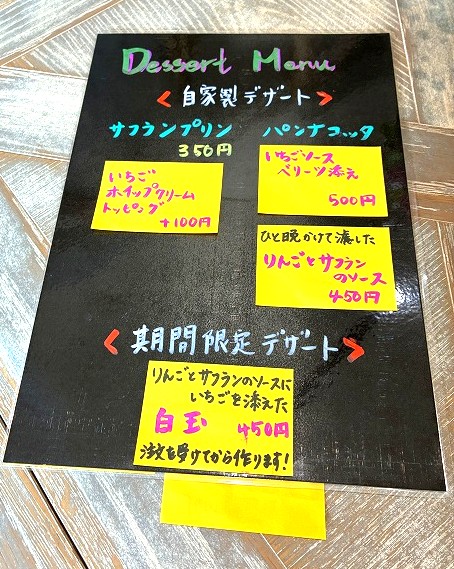 Dessert Menu
< 自家製デザート >
サフランプリン
350円
いちご
ホイップクリーム
トッピング
+100円
パンナコッタ
いちごソース
ベリーツ添え
500円
ひと晩かけて漉した
りんごとサフラン
のソース
450円
< 期間限定デザート >
りんごとサフランのソースに
いちごを添えた
白玉 450円
注文を受けてから作ります!